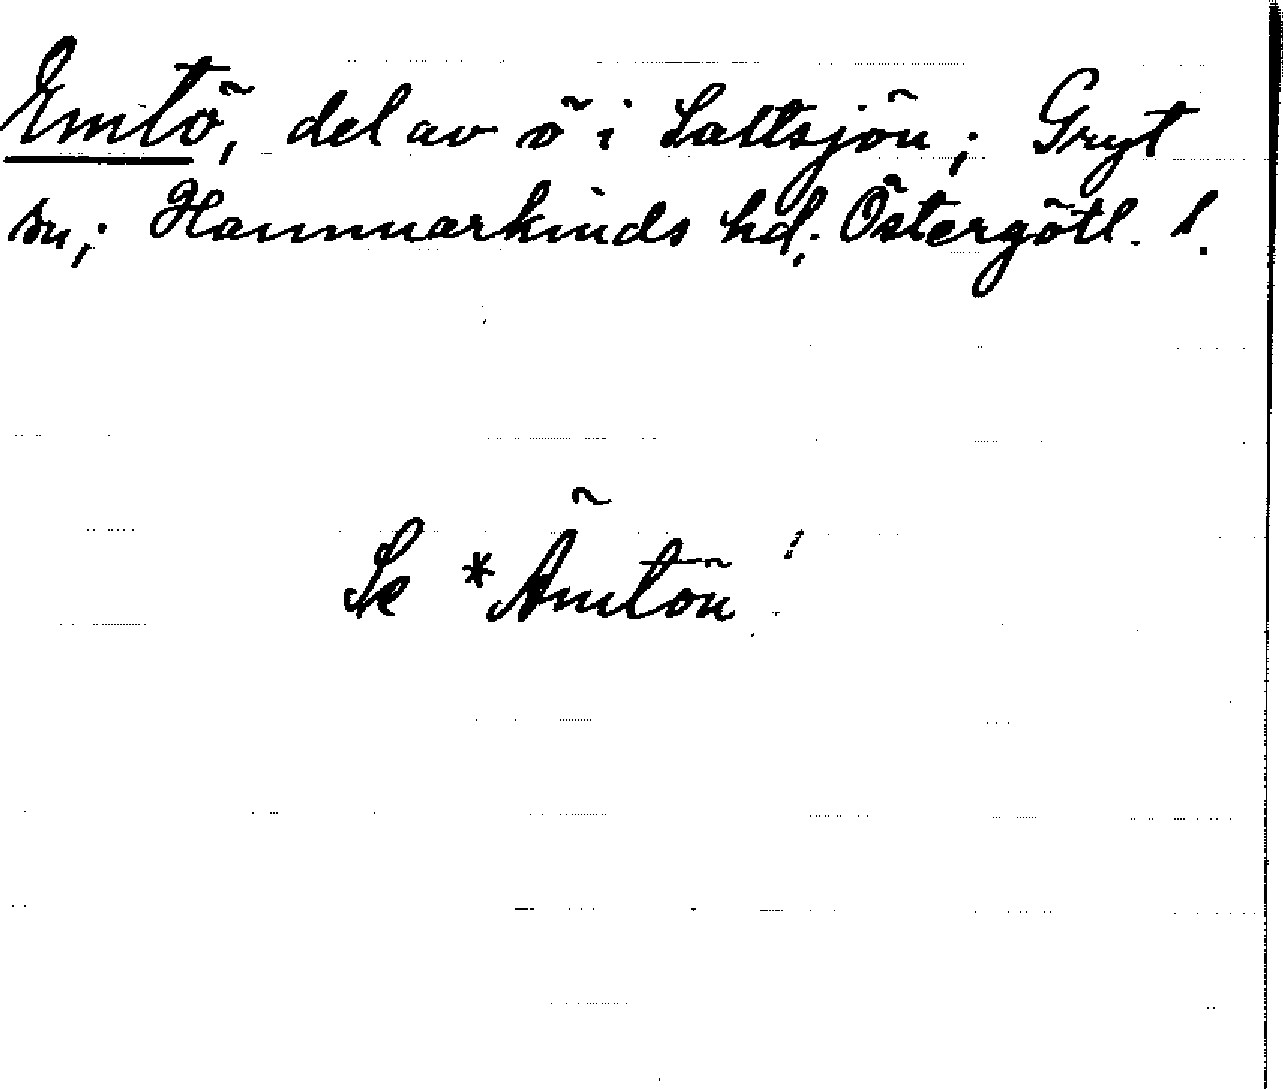 Emtö, del av ö i Saltsjön; Gryt
sn; Hammarkinds hd; Östergötl. l.
Se *Ämtön!